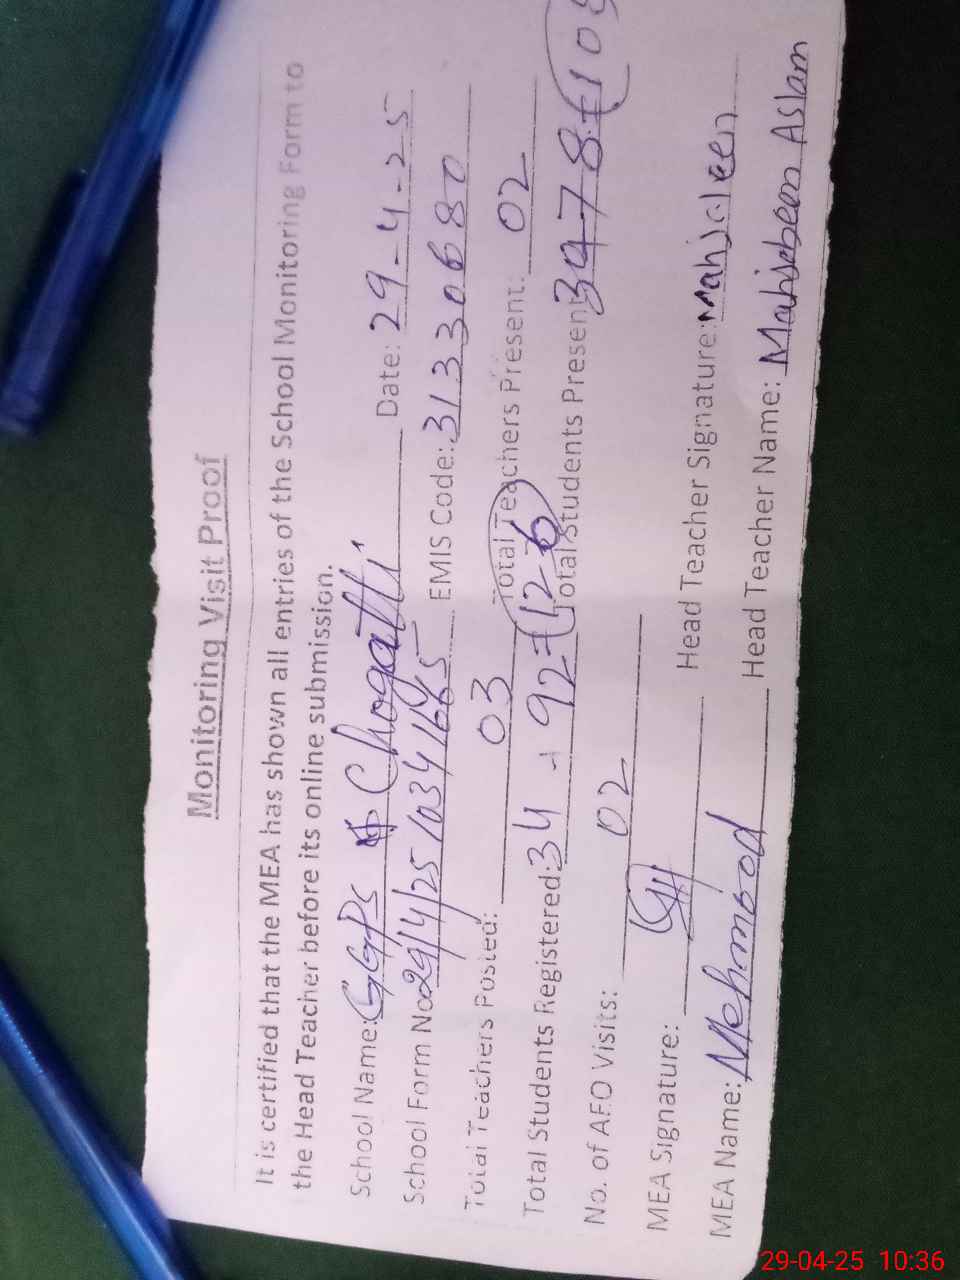 Monitoring Visit Proof
It is certified that the MEA has shown all entries of the School Monitoring Form to
the Head Teacher before its online submission.
School Name: GGPS Chogatti Date: 29-4-25
School Form No: 29/4/25/1034165 EMIS Code: 31330680
Total Teachers Posted: 03 Total Teachers Present: 02
Total Students Registered: 34 - 92 = (126) Total Students Present: 34-78=(108
No. of AEO Visits: 02
MEA Signature: Head Teacher Signature: Mahjabeen
MEA Name: Mehmood Head Teacher Name: Mahjabeen Aslam
29-04-25 10:36